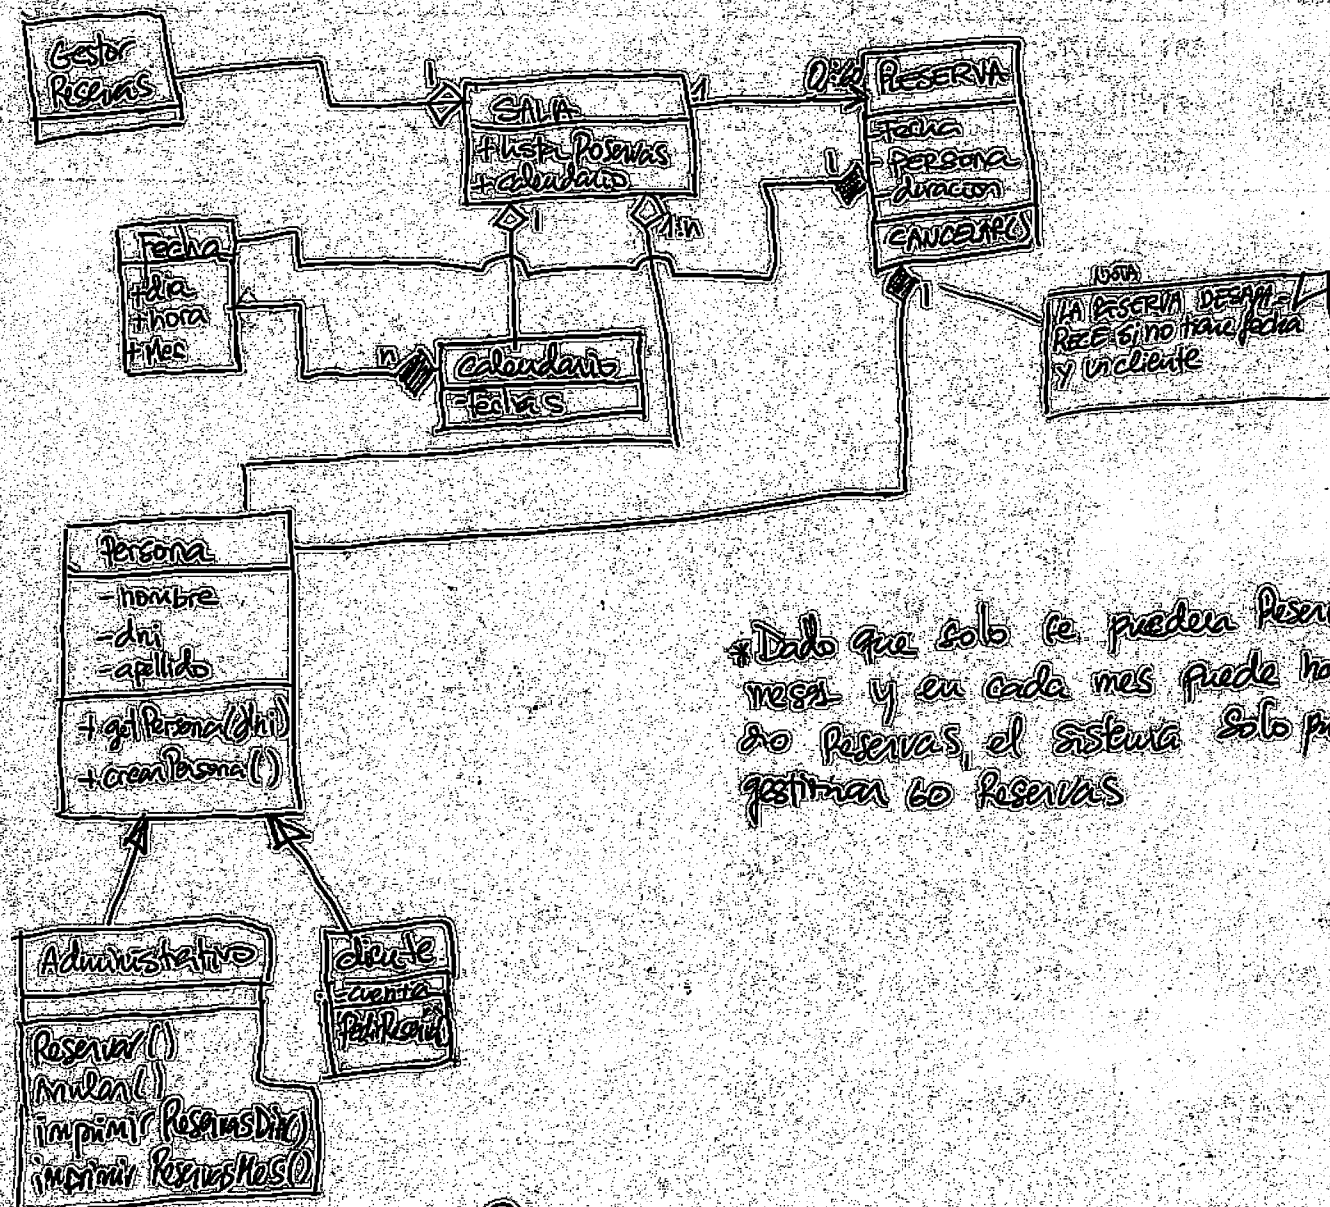 Gestor
Reservas
1
SALA
+listar Reservas
+calendario
1
0:60
RESERVA
-Fecha
- persona
-duracion
CANCELAR()
1
1
1:n
Fecha
+dia
+hora
+Mes
n
Calendario
-fechas
1
NOTA
LA RESERVA DESAPA-
RECE si no trae fecha
y un cliente
Persona
-nombre
-dni
-apellido
+getPersona(dni)
+crearPersona()
*Dado que solo se pueden Reser
meses y en cada mes puede
20 Reservas, el sistema solo
gestionan 60 Reservas
Administrativo
Reservar()
anular()
imprimir ReservasDia()
imprimir ReservasMes()
cliente
-cuenta